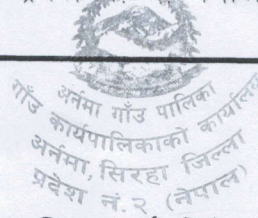 अर्नमा गाँउ पालिका
गाँउ कार्यपालिकाको कार्यालय
अर्नमा, सिरहा जिल्ला
प्रदेश नं. २ (नेपाल)